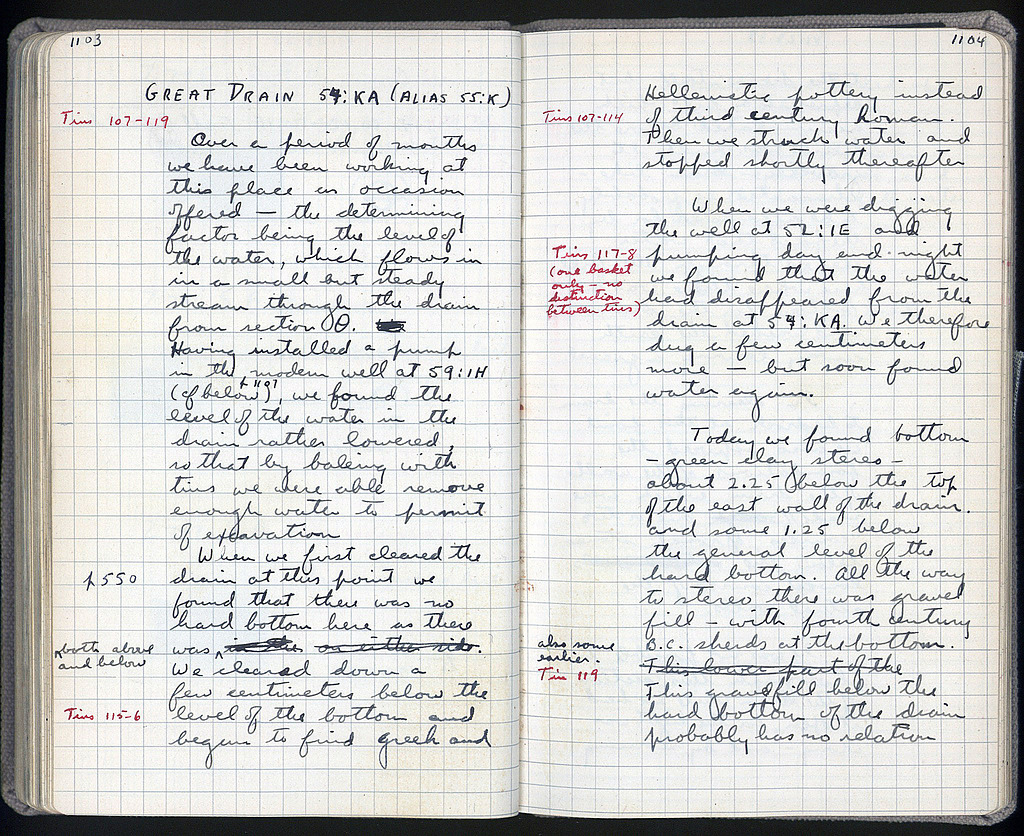 1103
GREAT DRAIN 54:KA (ALIAS 55:K)
Tins 107-119
Over a period of months
we have been working at
this place as occasion
offered — the determining
factor being the level of
the water, which flows in
in a small but steady
stream through the drain
from section Θ.
Having installed a pump
in the modern well at 59:1H
(cf below p 1197), we found the
level of the water in the
drain rather lowered,
so that by baleing with
tins we were able remove
enough water to permit
of excavation
When we first cleared the
p 550 drain at this point we
found that there was no
hard bottom here as there
was in the on either side.
both above
and below
We cleared down a
few centimeters below the
Tins 115-6 level of the bottom and
began to find greek and
1104
Hellenistic pottery instead
Tins 107-114 of third century Roman.
Then we struck water and
stopped shortly thereafter
When we were digging
the well at 52:1E and
Tins 117-8 pumping day and night
(one basket
only — no
distinction
between tins)
we found that the water
had disappeared from the
drain at 54:KA. We therefore
dug a few centimeters
more — but soon found
water again.
Today we found bottom
— green clay stereo —
about 2.25 below the top
of the east wall of the drain.
and some 1.25 below
the general level of the
hard bottom. All the way
to stereo there was gravel
fill — with fourth century
also some
earlier.
B.C. sherds at the bottom.
Tin 119
This lower part of the
This gravel fill below the
hard bottom of the drain
probably has no relation